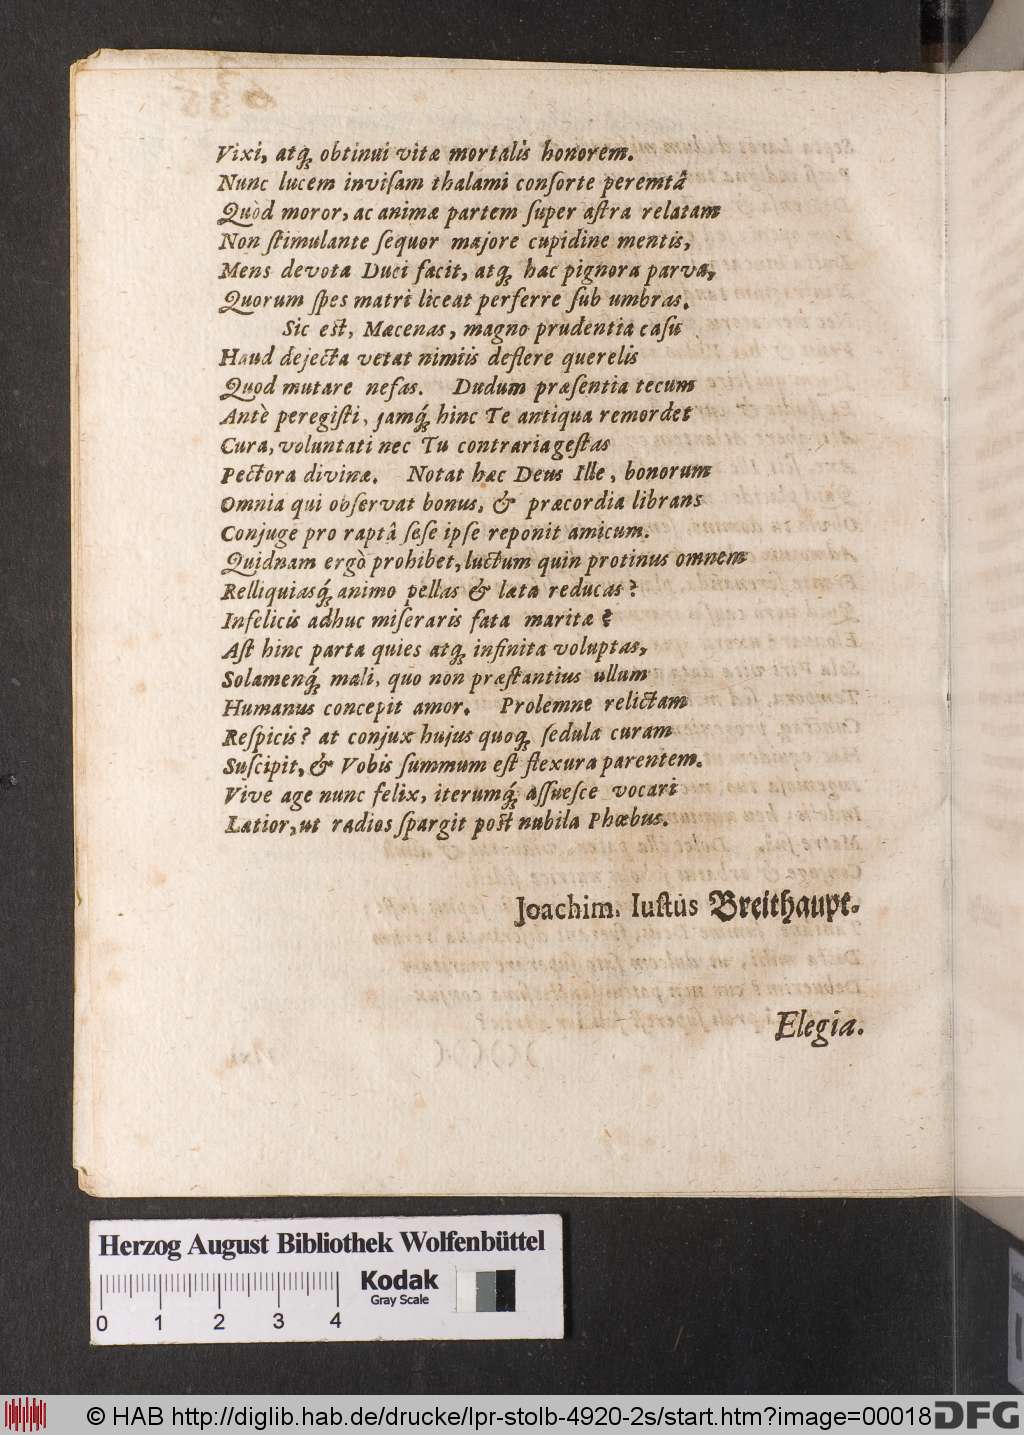 Vixi, atq́; obtinui vitæ mortalis honorem.
Nunc lucem inviſam thalami conſorte peremtâ
Quòd moror, ac animæ partem ſuper aſtra relatam
Non ſtimulante ſequor majore cupidine mentis,
Mens devota Duci facit, atq́; hac pignora parva,
Quorum ſpes matri liceat perferre ſub umbras.
Sic eſt, Mæcenas, magno prudentia caſu
Haud dejecta vetat nimiis deflere querelis
Quod mutare nefas. Dudum præſentia tecum
Antè peregiſti, jamq́; hinc Te antiqua remordet
Cura, voluntati nec Tu contraria geſtas
Pectora divinæ. Notat hæc Deus Ille, bonorum
Omnia qui obſervat bonus, & præcordia librans
Conjuge pro raptâ ſeſe ipſe reponit amicum.
Quidnam ergò prohibet, luctum quin protinus omnem
Relliquiasq́; animo pellas & læta reducas?
Infelicis adhuc miſeraris fata maritæ?
Aſt hinc parta quies atq́; infinita voluptas,
Solamenq́; mali, quo non præſtantius ullum
Humanus concepit amor. Prolemne relictam
Reſpicis? at conjux hujus quoq́; ſedula curam
Suſcipit, & Vobis ſummum eſt flexura parentem.
Vive age nunc felix, iterumq́; aſſueſce vocari
Lætior, ut radios ſpargit poſt nubila Phœbus.
Joachim. Iuſtus Breithaupt.
Elegia.
Herzog August Bibliothek Wolfenbüttel
Kodak
Gray Scale
0 1 2 3 4
© HAB http://diglib.hab.de/drucke/lpr-stolb-4920-2s/start.htm?image=00018
DFG